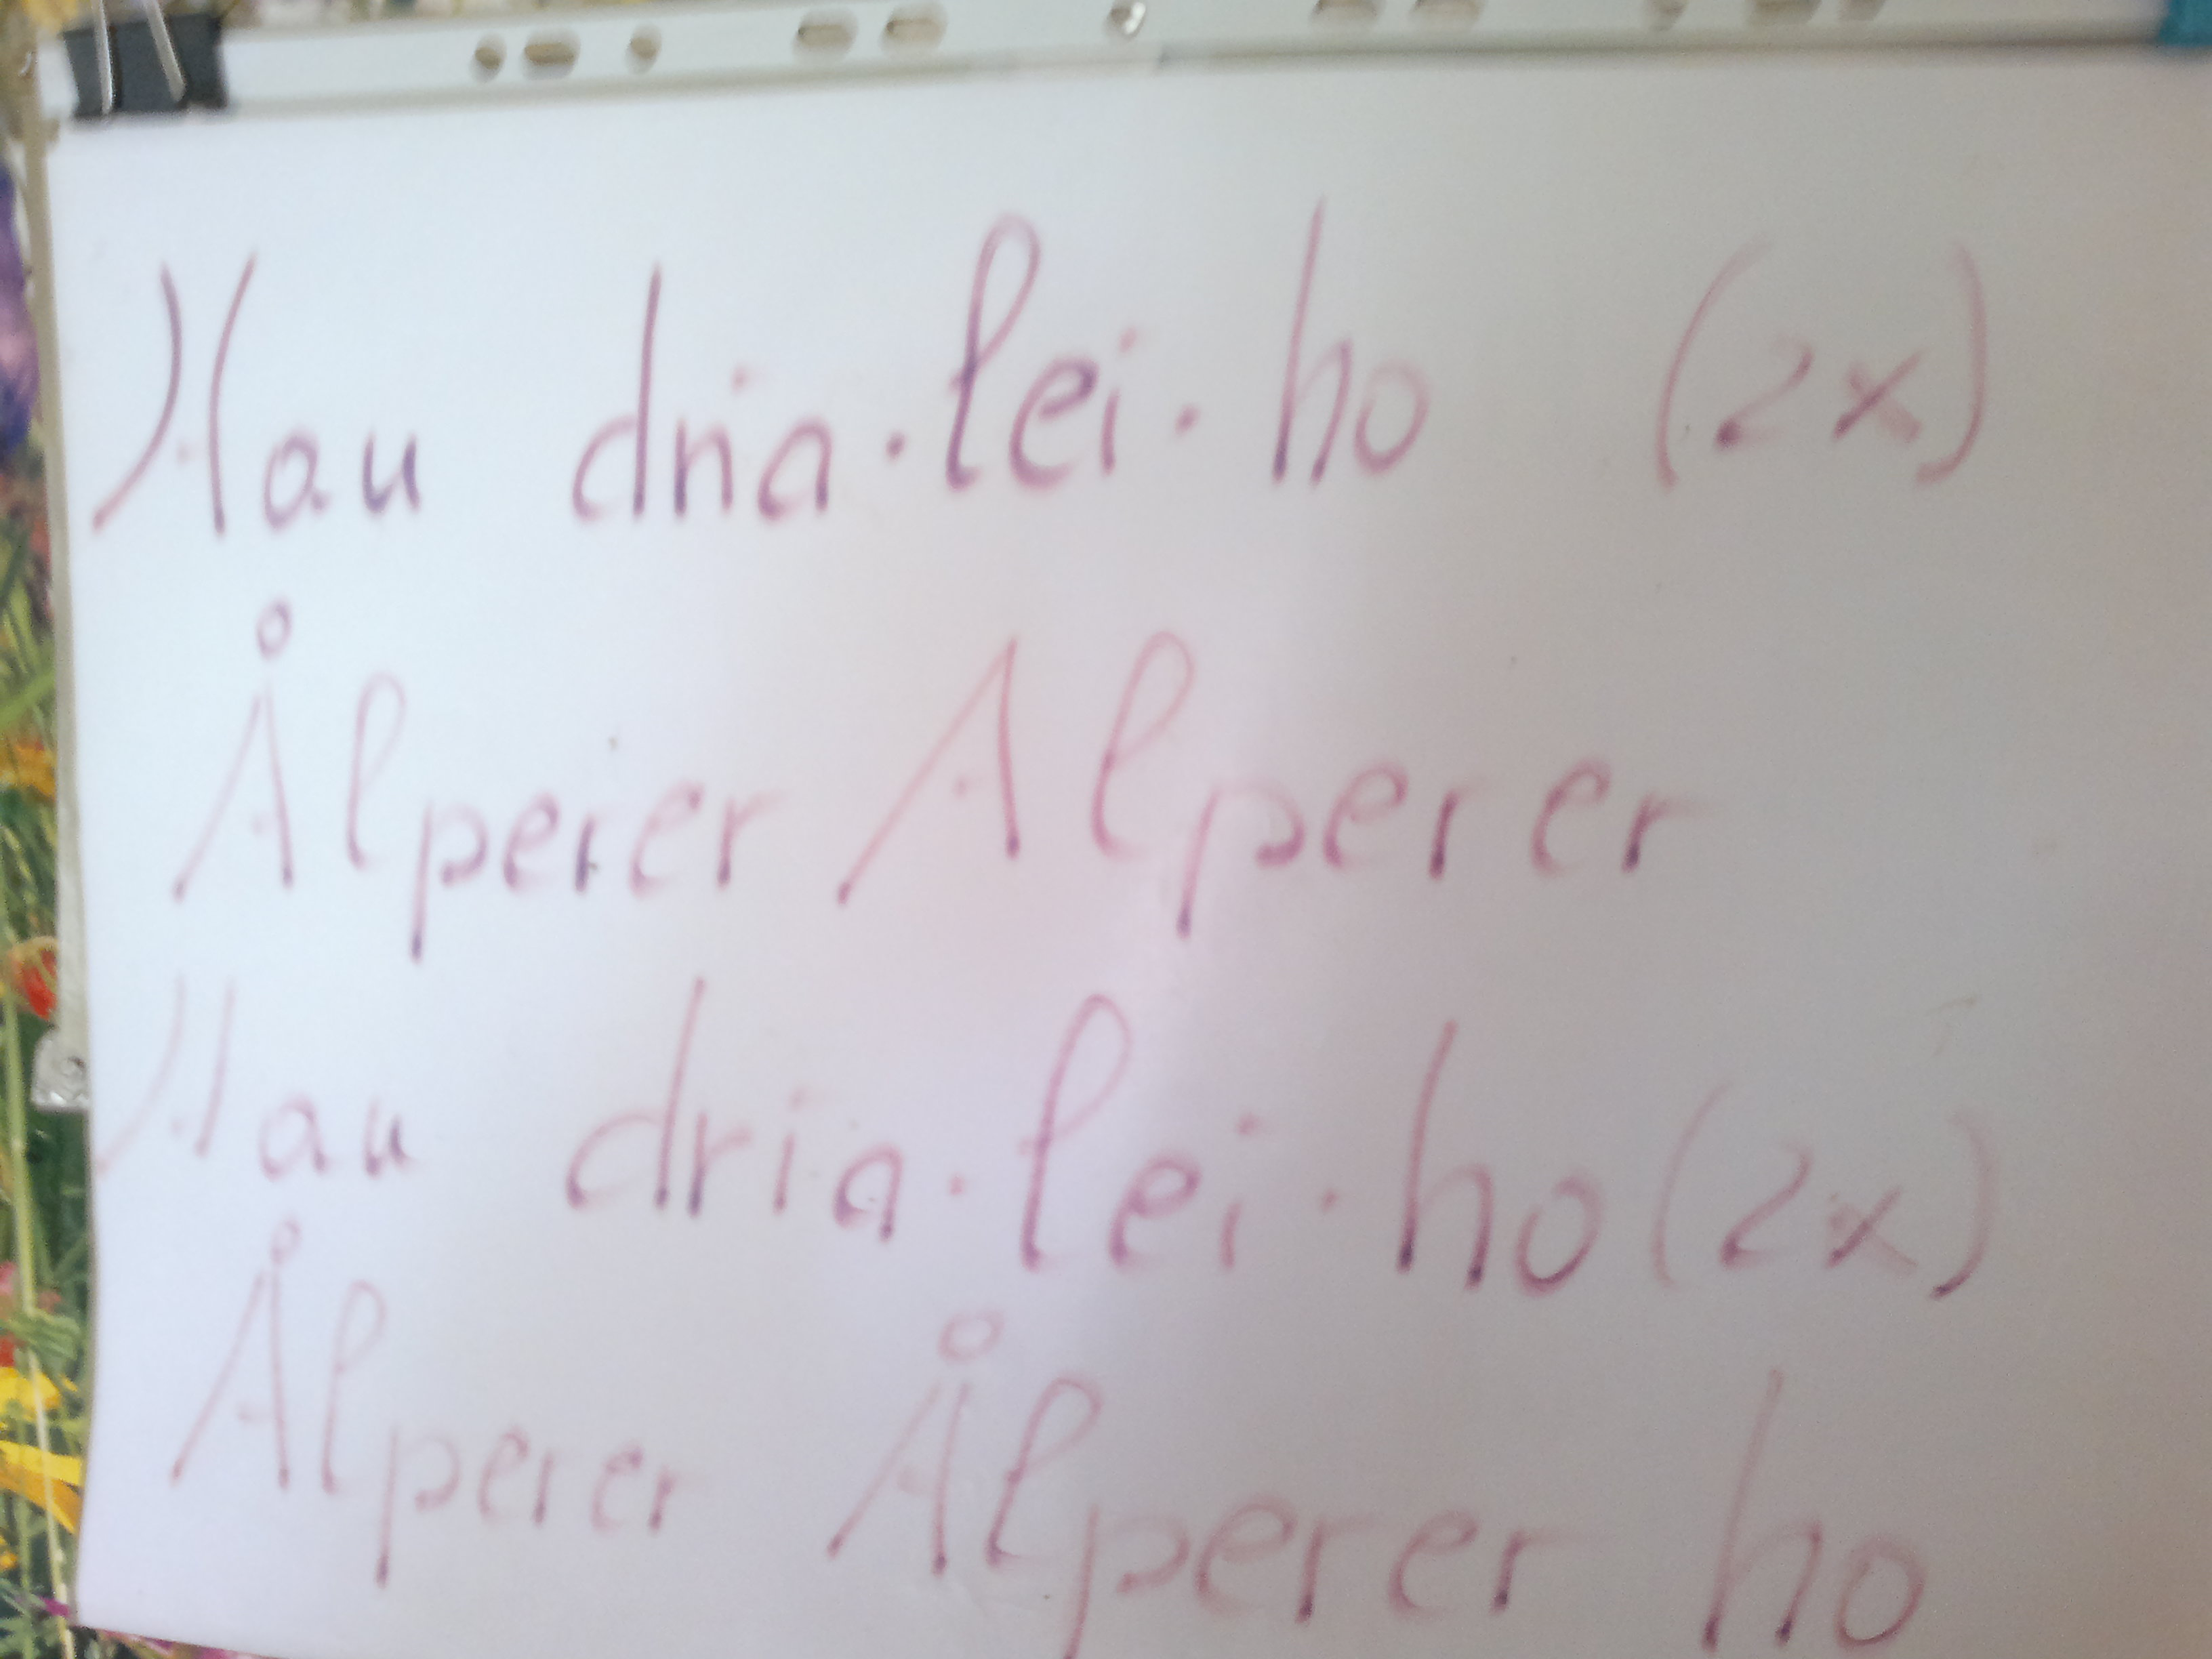 Hau dria·lei·ho (2x)
Ålperer Alperer
Hau dria·lei·ho (2x)
Ålperer Ålperer ho